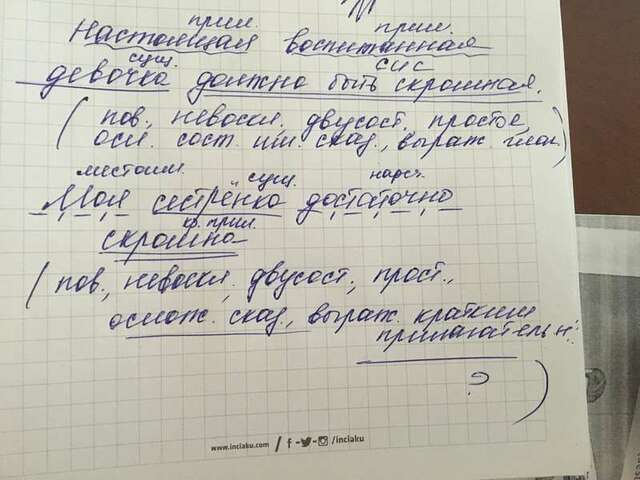 прил. прил.
Настоящая воспитанная
сущ. СИС
девочка должна быть скромной.
(пов., невоскл., двусост., простое
осл. сост. им. сказ., выраж. глаг.)
местоим. сущ. нареч.
Моя сестрёнка достаточно
кр. прил.
скромна
(пов., невоскл., двусост., прост.,
сказ., выраж. кратким
прилагательн.
?)
www.inclaku.com / f /inclaku